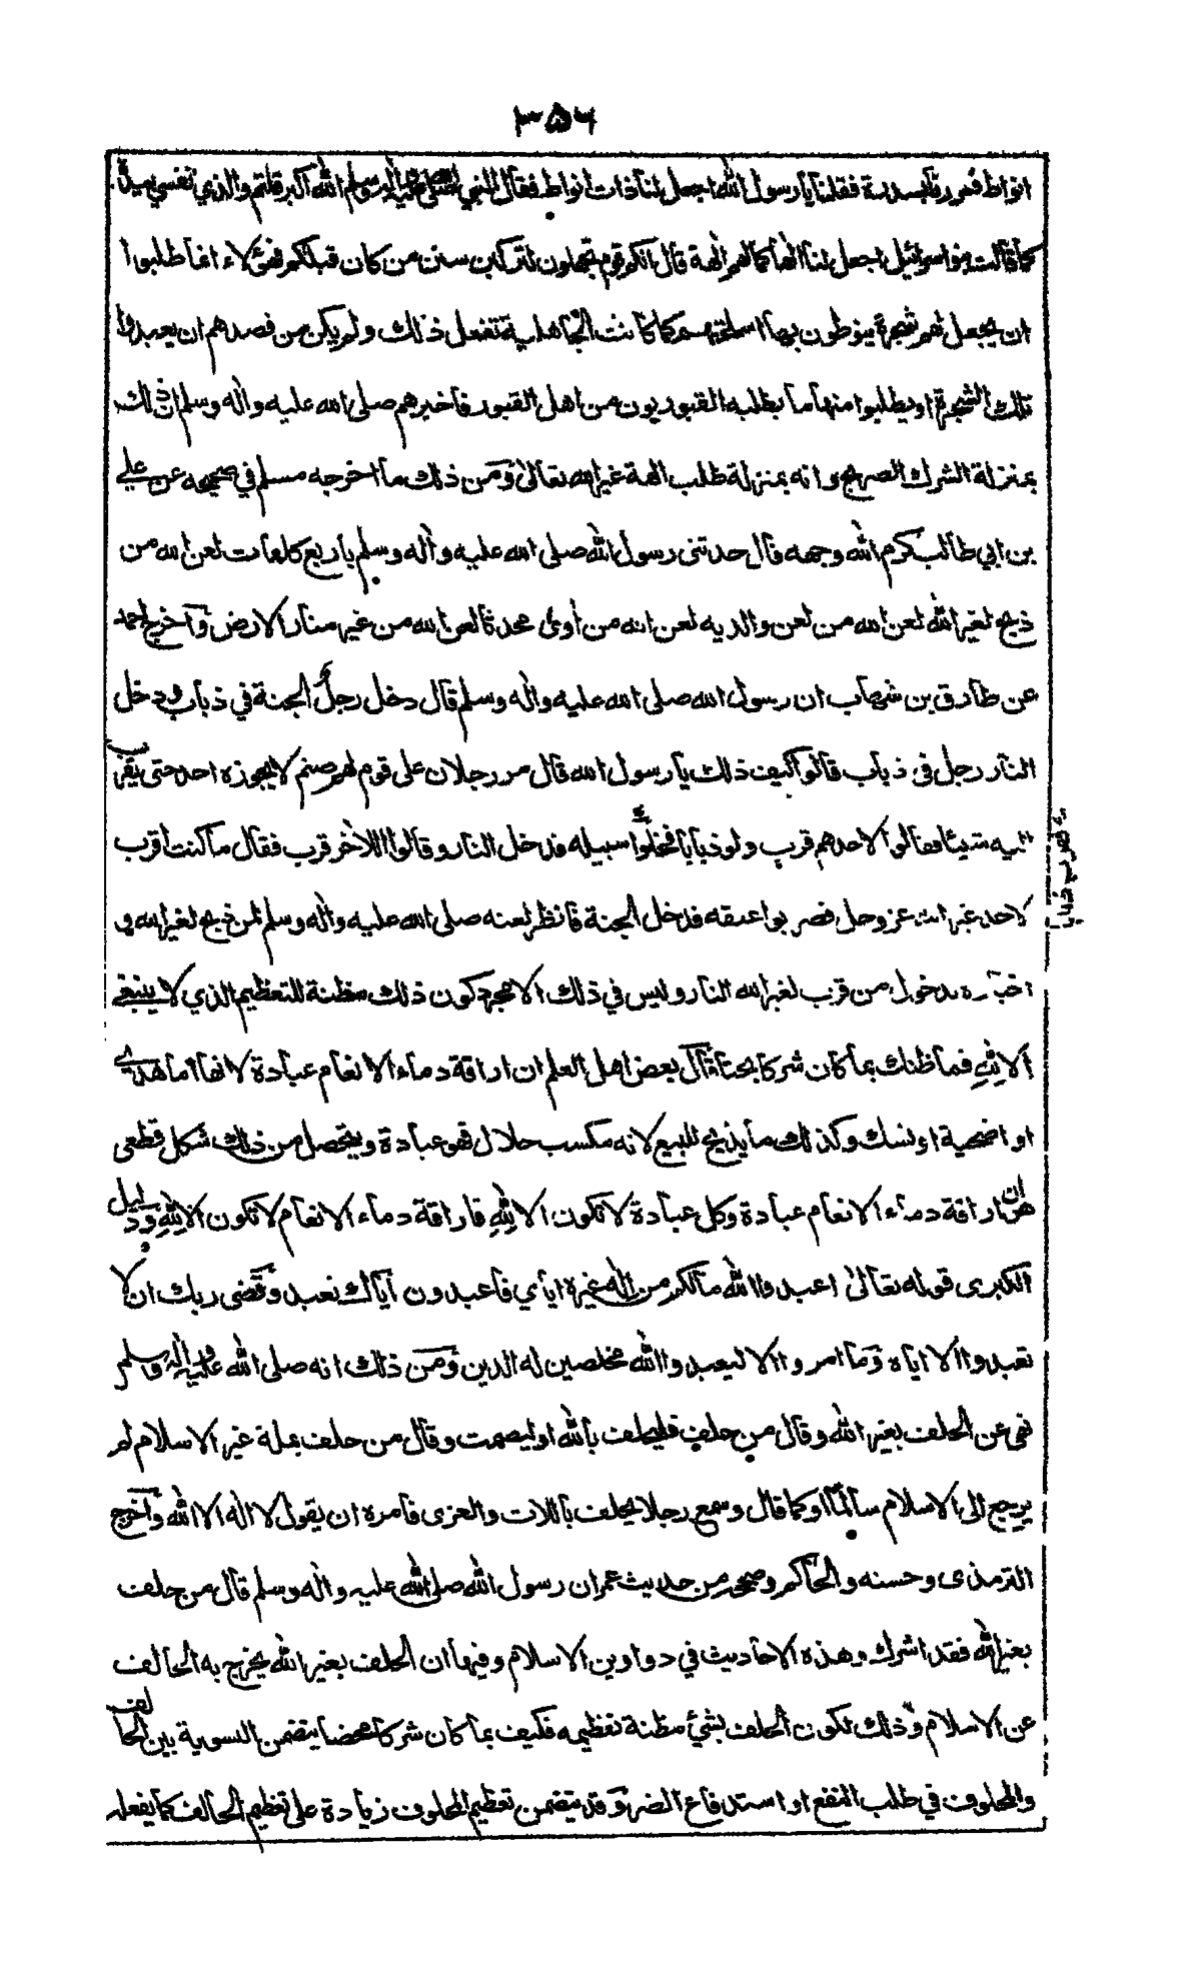 ٣٥٦
انواط فمررنا بسدرة فقلنا يا رسول الله اجعل لنا ذات انواط فقال النبي صلى الله عليه وآله وسلم الله اكبر قلتم والذي نفسي بيده
كما قالت بنو اسرائيل اجعل لنا الها كما لهم الهة قال انكم قوم تجهلون لتركبن سنن من كان قبلكم فهؤلاء انما طلبوا
ان يجعل لهم شجرة ينوطون بها اسلحتهم كما كانت الجاهلية تفعل ذلك ولم يكن من قصدهم ان يعبدوا
تلك الشجرة او يطلبوا منها ما يطلبه القبوريون من اهل القبور فاخبرهم صلى الله عليه وآله وسلم ان ذلك
بمنزلة الشرك الصريح وانه بمنزلة طلب الهة غير الله تعالى ومن ذلك ما اخرجه مسلم في صحيحه عن علي
بن ابي طالب كرم الله وجهه قال حدثني رسول الله صلى الله عليه وآله وسلم باربع كلمات لعن الله من
ذبح لغير الله لعن الله من لعن والديه لعن الله من آوى محدثا لعن الله من غير منار الارض وآخرج احمد
عن طارق بن شهاب ان رسول الله صلى الله عليه وآله وسلم قال دخل رجل الجنة في ذباب ودخل
النار رجل في ذباب قالوا كيف ذلك يا رسول الله قال مر رجلان على قوم لهم صنم لا يجوزه احد حتى يقرب
اليه شيئا فقالوا لاحدهم قرب ولو ذبابا فخلوا سبيله فدخل النار وقالوا للآخر قرب فقال ما كنت اقرب
لاحد غير الله عز وجل فضربوا عنقه فدخل الجنة فانظر لعنه صلى الله عليه وآله وسلم لمن ذبح لغير الله و
اخباره بدخول من قرب لغير الله النار وليس في ذلك الا مجرد كون ذلك مظنة للتعظيم الذي لا ينبغي
الا لله فما ظنك بما كان شركا بحتا قال بعض اهل العلم ان اراقة دماء الانعام عبادة لانها اما هدي
او اضحية او نسك وكذلك ما يذبح للبيع لانه مكسب حلال فهو عبادة ويتحصل من ذلك شكل قطعي
هو ان اراقة دماء الانعام عبادة وكل عبادة لا تكون الا لله فاراقة دماء الانعام لا تكون الا لله ودليل
الكبرى قوله تعالى اعبدوا الله ما لكم من اله غيره اياي فاعبدون آياك نعبد وقضى ربك ان لا
تعبدوا الا اياه وما امروا الا ليعبدوا الله مخلصين له الدين ومن ذلك انه صلى الله عليه وآله وسلم
نهى عن الحلف بغير الله وقال من حلف فليحلف بالله او ليصمت وقال من حلف بملة غير الاسلام لم
يرجع الى الاسلام سالما او كما قال وسمع رجلا يحلف باللات والعزى فامره ان يقول لا اله الا الله وآخرج
الترمذي وحسنه والحاكم وصححه من حديث عمر ان رسول الله صلى الله عليه وآله وسلم قال من حلف
بغير الله فقد اشرك وهذه الاحاديث في دواوين الاسلام وفيها ان الحلف بغير الله يخرج به الحالف
عن الاسلام وذلك لكون الحلف بشيء مظنة تعظيمه فكيف بما كان شركا محضا يتضمن التسوية بين الخالق
والمخلوق في طلب النفع او استدفاع الضر وقد يتضمن تعظيم المخلوق زيادة على تعظيم الخالق كما يفعله